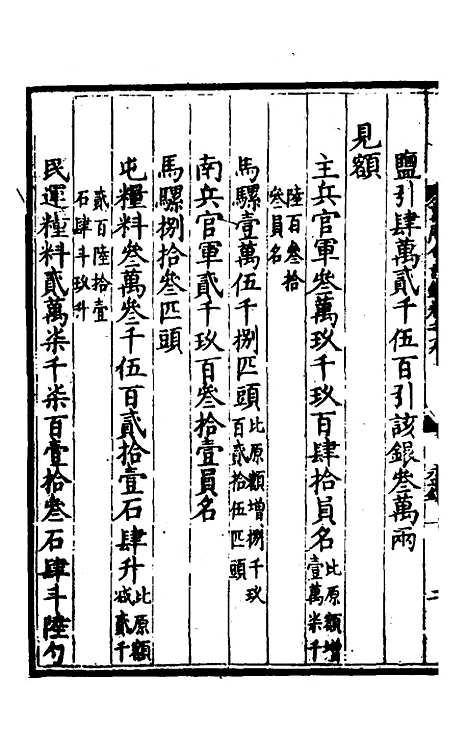 鹽引肆萬貳千伍百引該銀叁萬兩
見額
主兵官軍叁萬玖千玖百肆拾員名比原額增壹萬柒千
陸百叁拾叁員名
馬騾壹萬伍千捌匹頭比原額增捌千玖百貳拾伍匹頭
南兵官軍貳千玖百叁拾壹員名
馬騾捌拾叁匹頭
屯糧料叁萬叁千伍百貳拾壹石肆升比原額減貳千
貳百陸拾壹石肆斗玖升
民運糧料貳萬柒千柒百壹拾叁石肆斗陸勺